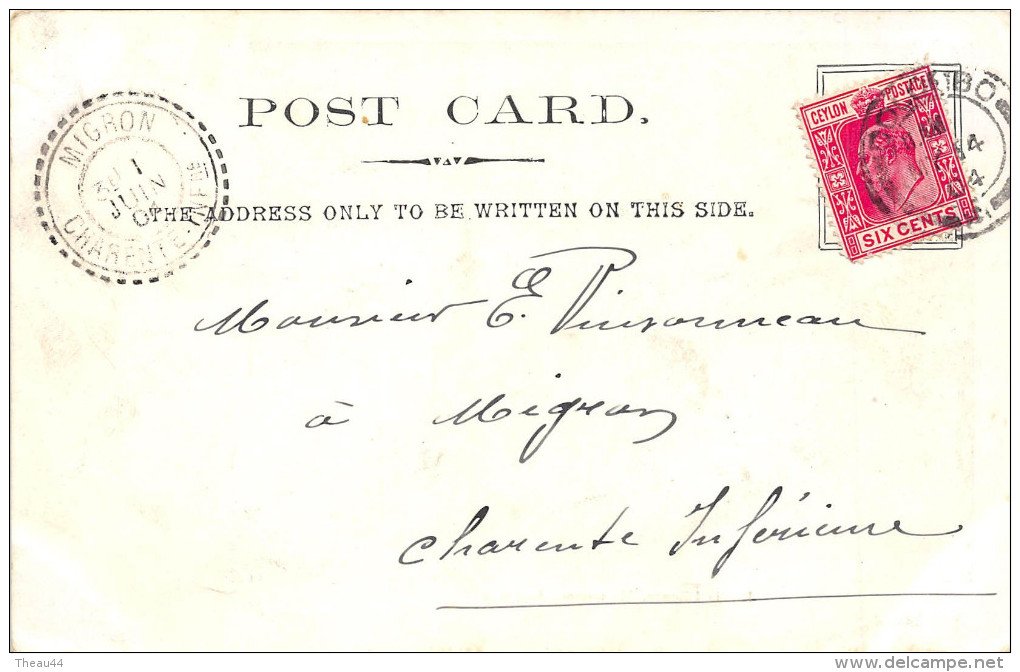 POST CARD.
THE ADDRESS ONLY TO BE WRITTEN ON THIS SIDE.
MIGRON
JUIN
CHARENTE-INFRE
CEYLON POSTAGE
SIX CENTS
Monsieur E. Pinsonneau
à Migron
Charente Inférieure
Theau44
www.delcampe.net